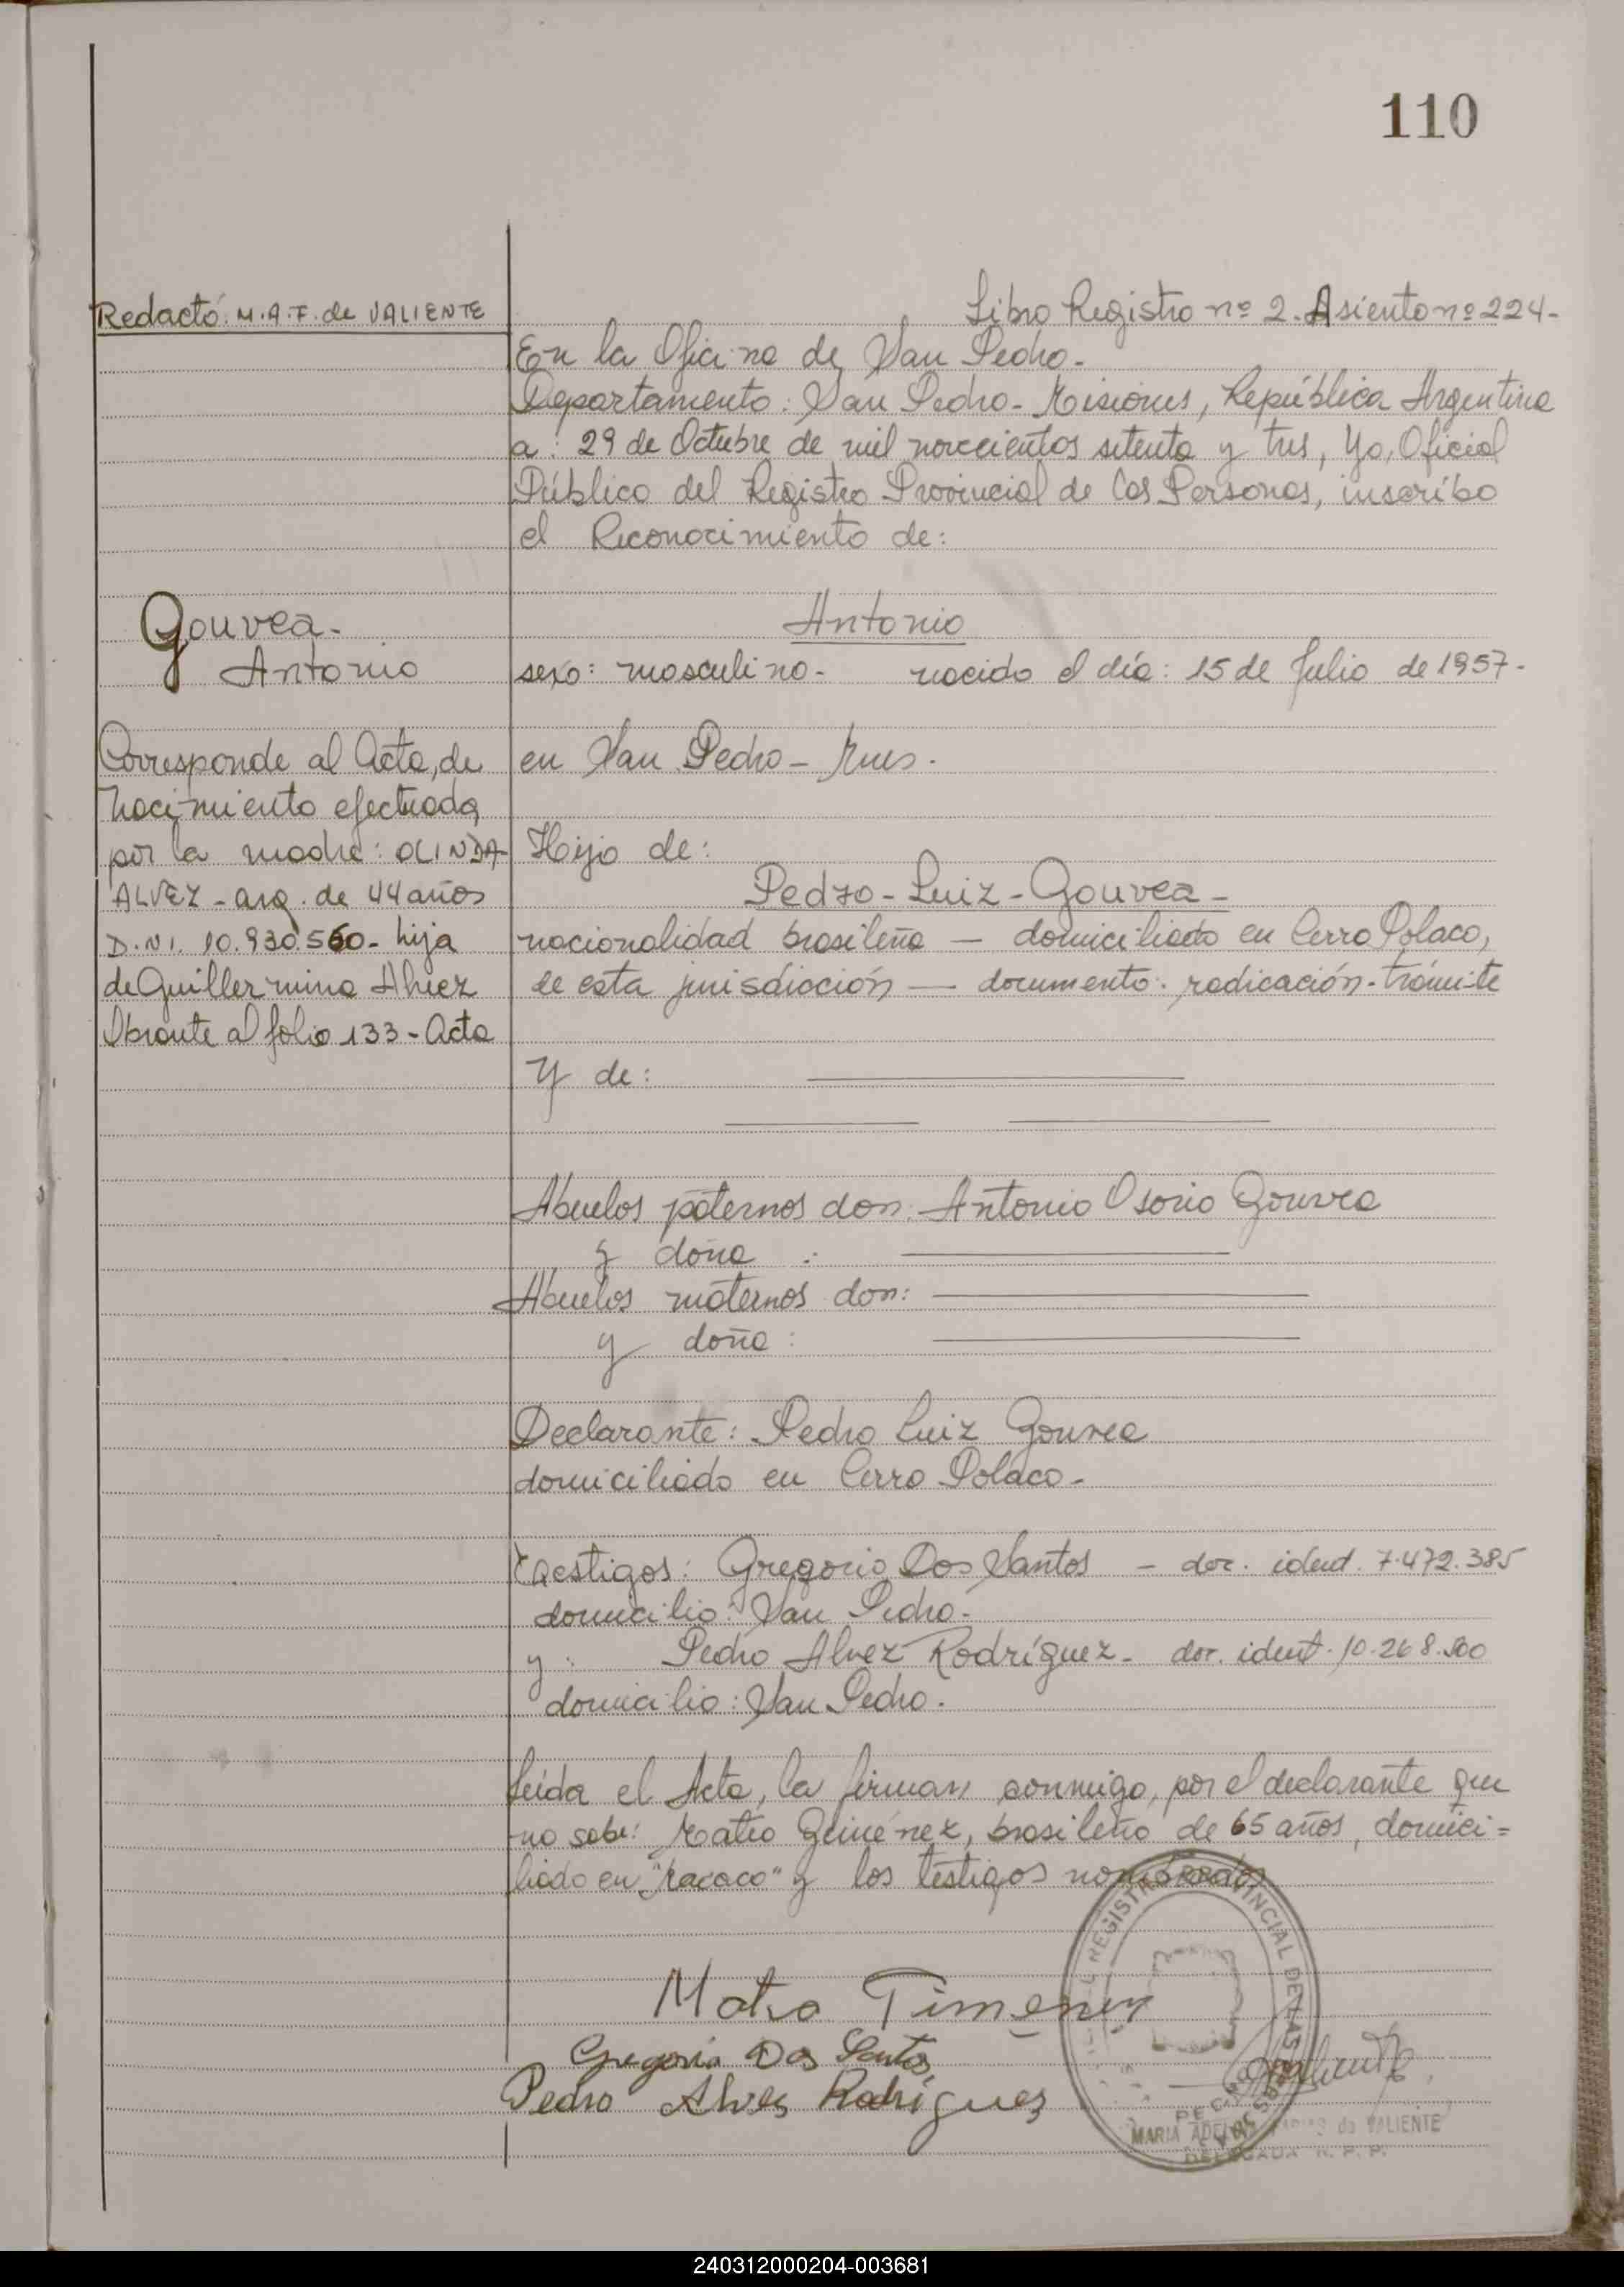 110
Redactó: M.A.F. de VALIENTE
Libro Registro nº 2. Asiento nº 224-
En la Oficina de San Pedro-
Departamento: San Pedro- Misiones, República Argentina
a: 29 de Octubre de mil novecientos setenta y tres, Yo, Oficial
Público del Registro Provincial de las Personas, inscribo
el Reconocimiento de:
Gouvea-
Antonio
Antonio
sexo: masculino- nacido el día: 15 de Julio de 1957-
en San Pedro- Mnes.
Corresponde al Acta, de
nacimiento efectuada
por la madre: OLINDA
ALVEZ - arg. de 44 años
D.NI. 10.930.560- hija
de Guillermina Alvez
Obrante al folio 133- Acta
Hijo de:
Pedro-Luiz-Gouvea-
nacionalidad brasileña — domiciliado en Cerro Polaco,
de esta jurisdicción — documento: radicación-trámite
Y de:
Abuelos paternos don: Antonio Osorio Gouvea
y doña :
Abuelos maternos don:
y doña:
Declarante: Pedro Luiz Gouvea
domiciliado en Cerro Polaco-
Testigos: Gregorio Dos Santos - doc. ident. 7.472.385
domicilio: San Pedro-
y: Pedro Alvez Rodríguez- doc. ident. 10.268.500
domicilio: San Pedro.
Leída el Acta, la firman conmigo, por el declarante que
no sabe: Mateo Giménez, brasileño de 65 años, domici=
liado en "Macaco" y los testigos nombrados
REGISTRO PROVINCIAL DE LAS PERSONAS
Gregorio Dos Santos
Pedro Alves Rodrigues
MARIA de VALIENTE
DELEGADA R. P. P.
240312000204-003681